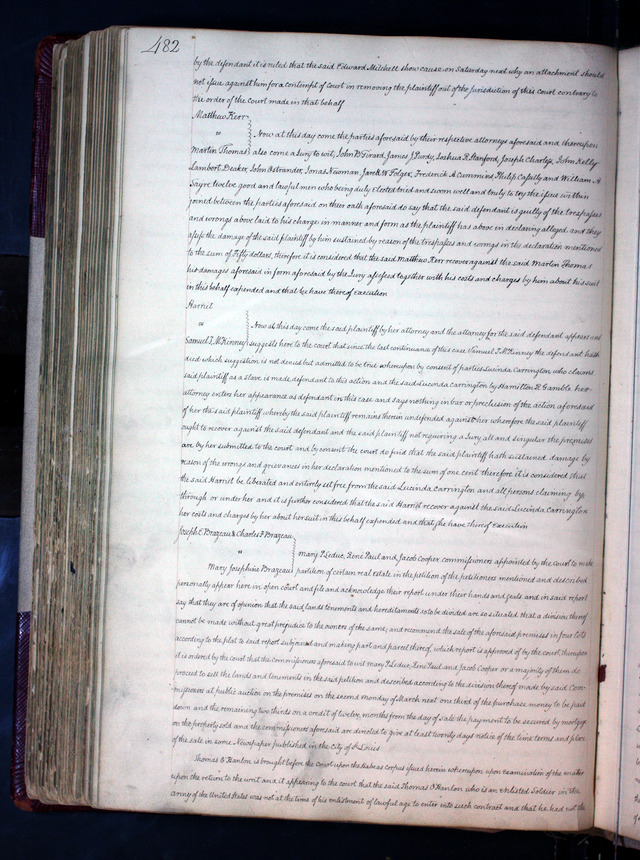 482
by the defendant it is ruled that the said Edward Mitchell show cause on Saturday next why an attachment should
not issue against him for a contempt of Court in removing the plaintiff out of the jurisdiction of this Court contrary to
the order of the court made in that behalf
Matthew Kerr
vs Now at this day come the parties aforesaid by their respective attorneys aforesaid and thereupon
Martin Thomas also come a Jury to wit, John B Girard, James J Purdy, Joshua R Stanford, Joseph Charless, John Kelly
Lambert Deaker, John Ostrander, Jonas Newman, Jareb W Folger, Frederick A Cummins, Philip Cafsilly and William H
Sayre twelve good and lawful men who being duly elected tried and sworn well and truly to try the issue within
joined between the parties aforesaid on their oath aforesaid do say that the said defendant is guilty of the trespasses
and wrongs above laid to his charge in manner and form as the plaintiff has above in declaring alleged and they
assess the damage of the said plaintiff by him sustained by reason of the trespasses and wrongs in the declaration mentioned
to the sum of Fifty dollars, therefore it is considered that the said Matthew Kerr recover against the said Martin Thomas
his damages aforesaid in form aforesaid by the Jury assessed together with his costs and charges by him about his suit
in this behalf expended and that he have thereof execution
Harriet
vs Now at this day come the said plaintiff by her attorney and the attorney for the said defendant appears and
Samuel T. McKinney suggests here to the court that since the last continuance of this case Samuel T. McKinney the defendant hath
died which suggestion is not denied but admitted to be true whereupon by consent of parties Lucinda Carrington, who claims
said plaintiff as a slave is made defendant to this action and the said Lucinda Carrington by Hamilton R Gamble her
attorney enters her appearance as defendant in this case and says nothing in bar or preclusion of the action aforesaid
of her the said plaintiff whereby the said plaintiff remains therein undefended against her wherefore the said plaintiff
ought to recover against the said defendant and the said plaintiff not requiring a Jury all and singular the premises
are by her submitted to the court and by consent the court do find that the said plaintiff hath sustained damage by
reason of the wrongs and grievances in her declaration mentioned to the sum of one cent therefore it is considered that
the said Harriet be liberated and entirely set free from the said Lucinda Carrington and all persons claiming by,
through or under her and it is further considered that the said Harriet recover against the said Lucinda Carrington
her costs and charges by her about her suit in this behalf expended and that she have thereof execution
Joseph E Brazeau & Charles P Brazeau
vs Mary P Leduc, René Paul and Jacob Cooper commissioners appointed by the court to make
Mary Josephine Brazeau partition of certain real estate in the petition of the petitioners mentioned and described
personally appear here in open court and file and acknowledge their report under their hands and seals and in said report
say that they are of opinion that the said lands tenements and hereditaments so to be divided are so situated that a division thereof
cannot be made without great prejudice to the owners of the same; and recommend the sale of the aforesaid premises in four lots
according to the plat to said report subjoined and making part and parcel thereof, which report is approved of by the court, thereupon
it is ordered by the court that the commissioners aforesaid to wit Mary P Leduc, René Paul and Jacob Cooper or a majority of them do
proceed to sell the lands and tenements in the said petition and described according to the division thereof made by said Com-
missioners at public auction on the premises on the second monday of March next one third of the purchase money to be paid
down and the remaining two thirds on a credit of twelve months from the day of sale the payment to be secured by mortgage
on the property sold and the commissioners aforesaid are directed to give at least twenty days notice of the time terms and place
of the sale in some Newspaper published in the City of St Louis
Thomas O Hanlon is brought before the Court upon the Habeas Corpus issued herein whereupon upon examination of the matter
upon the return to the writ and it appearing to the court that the said Thomas O'Hanlon who is an enlisted Soldier in the
Army of the United States was not at the time of his enlistment of lawful age to enter into such contract and that he had not the